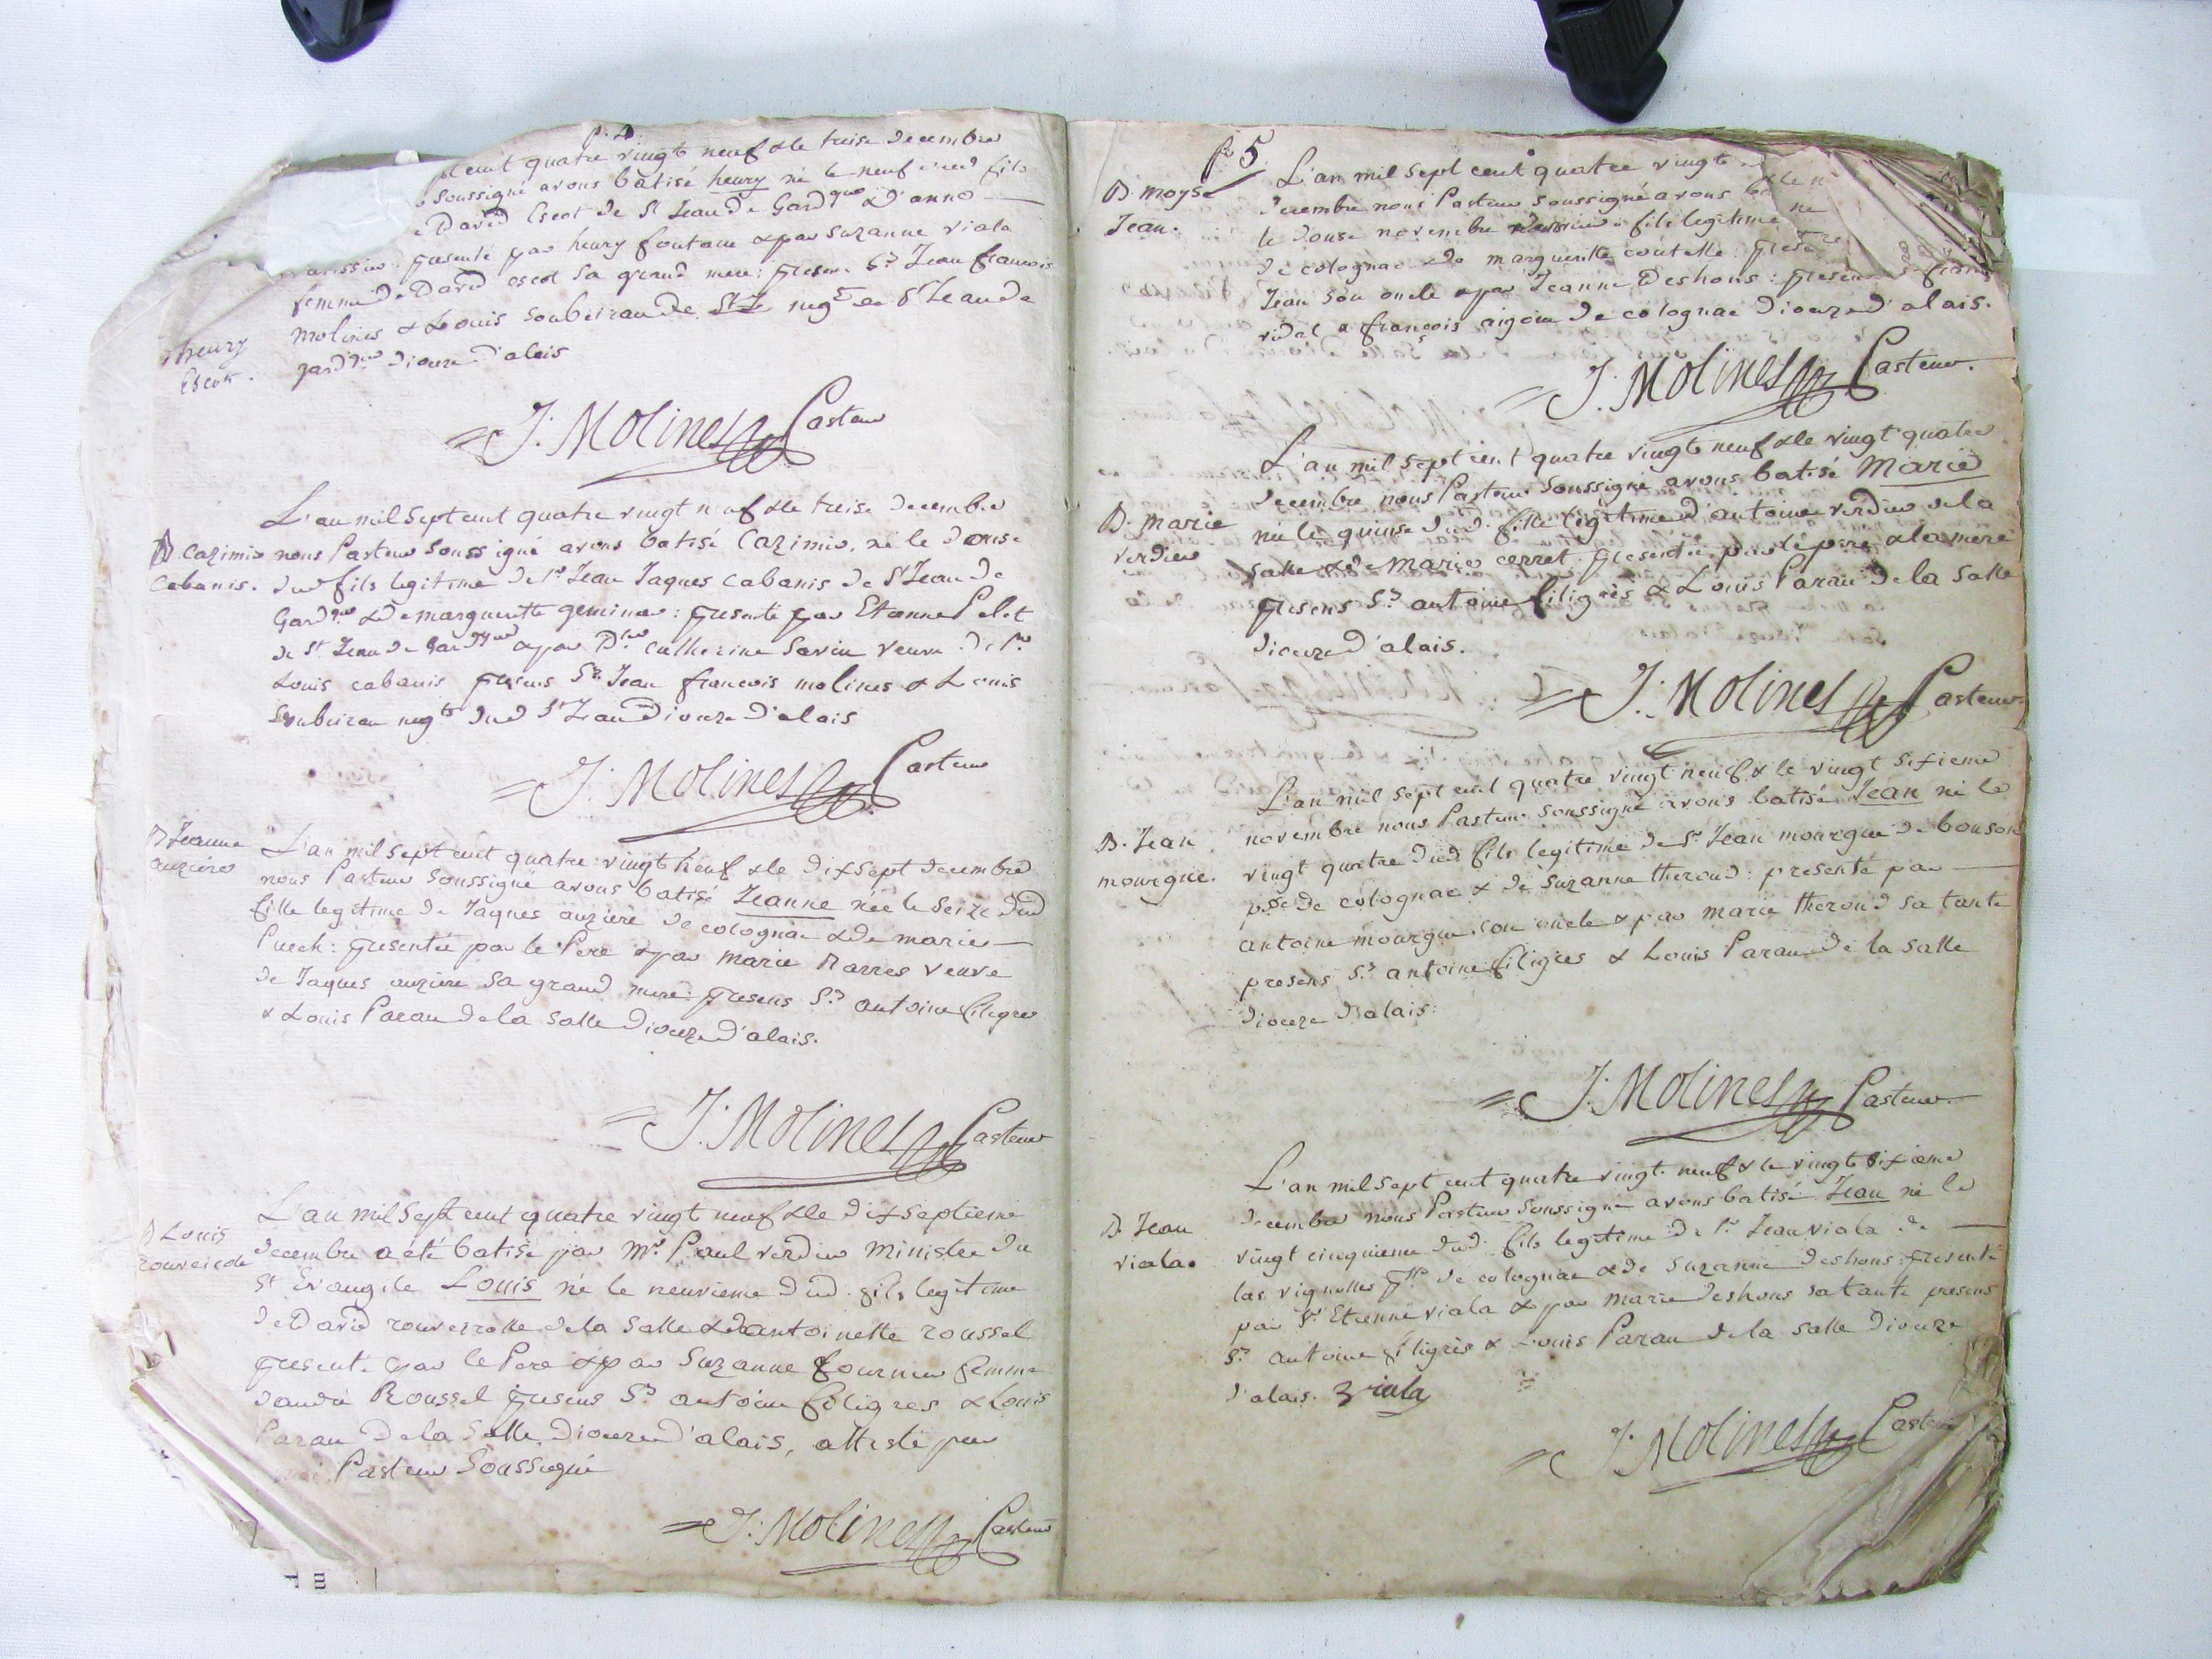 p. 4.
cent quatre vingt neuf & le treise decembre
soussigné avons batisé henry né le neuf fils
David Escot de St Jean de Gardque & d'anne
presenté par henry fontane & par suzanne viala
femme de David escot sa grand mere: presens Srs Jean francois
molines & Louis soubeiran de St Je negts de St Jean de
gardque dioceze d'alais
henry
Escot.
J: Molines Pasteur
L'an mil sept cent quatre vingt neuf & le treise decembre
B. Cazimir nous Pasteur soussigné avons batisé Cazimir, né le douse
Cabanis. dud fils legitime de Sr Jean Jaques cabanis de St Jean de
Gardque & de marguerite : presenté par Etienne Pelet
de St Jean de Gardque & par Dlle catherine Savin veuve de Sr
Louis cabanis presens Srs Jean francois molines & Louis
Soubeiran negts dud St Jean dioceze d'alais
J: Molines Pasteur
B Jeanne L'an mil sept cent quatre vingt neuf & le dix sept decembre
auziere nous Pasteur soussigné avons batisé Jeanne née le seize dud
fille legitime de Jaques auziere de colognac & de marie
Puech: presentée par le Pere & par marie Barres veuve
de Jaques auziere sa grand mere: presens Srs antoine filigres
& Louis Parau de la salle dioceze d'alais.
J: Molines Pasteur
L'an mil sept cent quatre vingt neuf & le dix septieme
B Louis decembre a été batisé par Mr Paul verdier ministre du
rouveirole St Evangile Louis né le neuvieme dud fils legitime
de David rouveirolle de la salle & d'antoinette roussel
presenté par le Pere & par Suzanne fournier femme
d'andré Roussel presens Srs antoine filigres & Louis
Parau de la Salle, dioceze d'alais, attesté par
moi Pasteur Soussigné
J: Molines Pasteur
p. 5
B. moyse L'an mil sept cent quatre vingt & le
Jean. decembre nous Pasteur soussigné avons né
le douse novembre dernier fils legitime
de colognac & de marguerite coutelle: presenté
Jean son oncle & par Jeanne Deshons: presens
vidal & francois aigoin de colognac dioceze d'alais.
J: Molines Pasteur.
L'an mil sept cent quatre vingt neuf & le vingt quatre
decembre nous Pasteur soussigné avons batisé Marie
B. marie née le quinse dud. fille legitime d'antoine verdier de la
verdier salle & de marie cerret presentée par le pere & la mere
presens Srs antoine filigrès & Louis Parau de la Salle
dioceze d'alais.
J: Molines Pasteur
L'an mil sept cent quatre vingt neuf & le vingt sixieme
novembre nous Pasteur soussigné avons batisé Jean né le
B. Jean vingt quatre dud fils legitime de Sr Jean mourgue de bouson
mourgue. psse de colognac & de suzanne theroud: presenté par
antoine mourgue son oncle & par marie theroud sa tante
presens Srs antoine filigres & Louis Parau de la salle
dioceze d'alais:
J: Molines Pasteur
L'an mil sept cent quatre vingt neuf & le vingt sixieme
decembre nous Pasteur soussigné avons batisé Jean né le
B. Jean vingt cinquieme dud. fils legitime de Sr Jean viala de
viala. las vignolles psse de colognac & de suzanne deshons: presenté
par Sr Etienne viala & par marie deshons sa tante presens
Srs antoine filigrès & Louis Parau de la salle dioceze
d'alais. Viala
J: Molines Pasteur